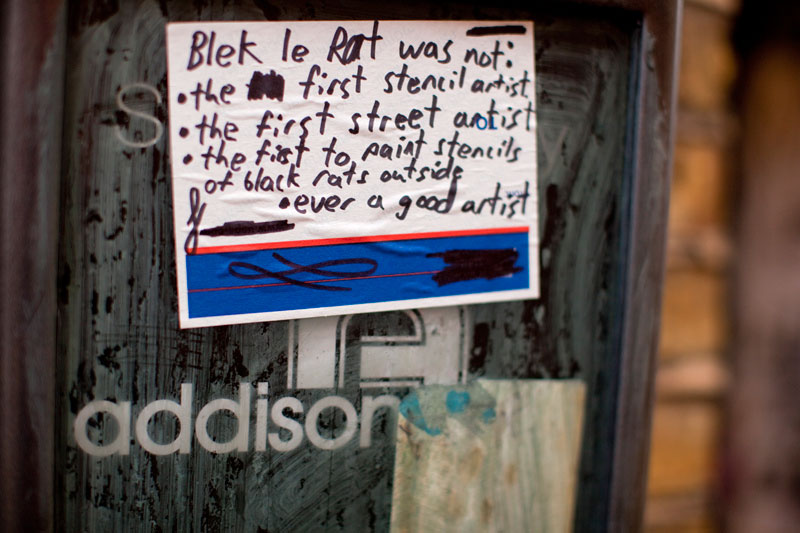 Blek le Rat was not:
• the first stencil artist
• the first street artist
• the first to paint stencils
of black rats outside
• ever a good artist
addison